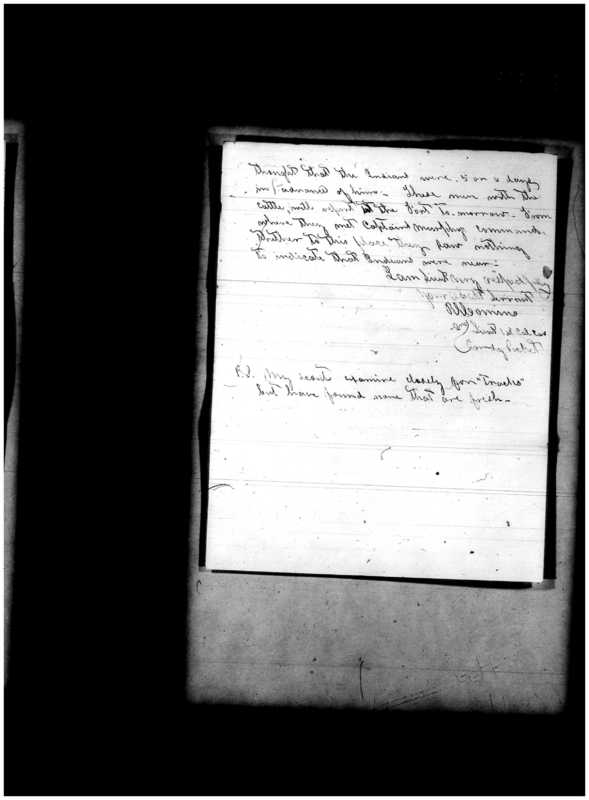 thought that the Indians were 2 or 3 days
in advance of him. These men with the
cattle, will report at the Fort to-morrow. From
where they met Captain Murphy command.
thither to this place they saw nothing
to indicate that Indians were near.
I am Lieut Very respectfully
your obedt servant
Lieut 1st Col Cav
Comdg
P.S. My scouts examine closely for "Tracks"
but have found none that are fresh—